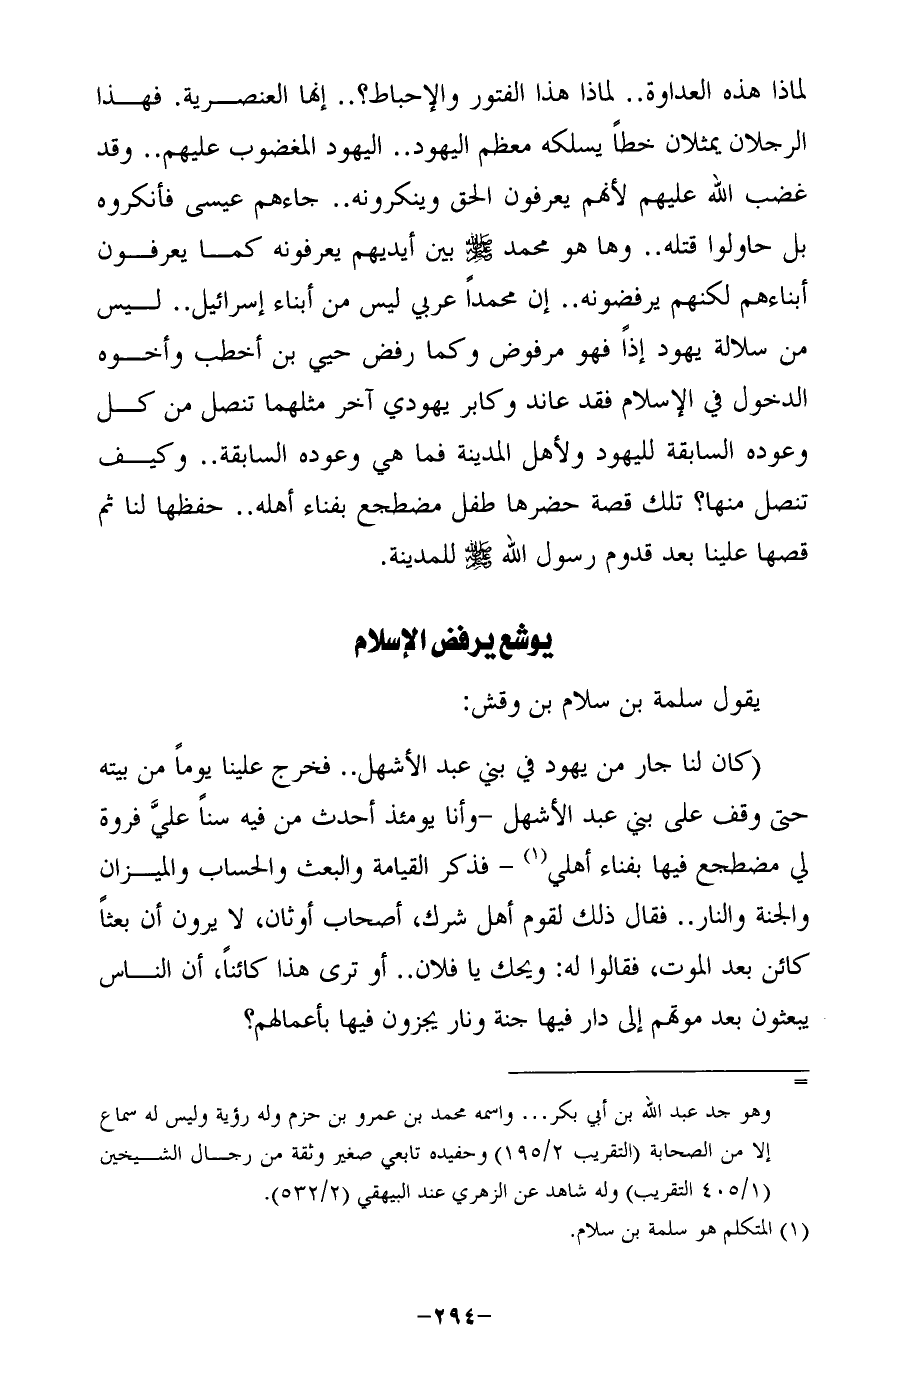 لماذا هذه العداوة.. لماذا هذا الفتور والإحباط؟.. إنها العنصرية. فهذا
الرجلان يمثلان خطاً يسلكه معظم اليهود.. اليهود المغضوب عليهم.. وقد
غضب الله عليهم لأنهم يعرفون الحق وينكرونه.. جاءهم عيسى فأنكروه
بل حاولوا قتله.. وها هو محمد ﷺ بين أيديهم يعرفونه كما يعرفون
أبناءهم لكنهم يرفضونه.. إن محمداً عربي ليس من أبناء إسرائيل.. ليس
من سلالة يهود إذاً فهو مرفوض وكما رفض حيي بن أخطب وأخوه
الدخول في الإسلام فقد عاند وكابر يهودي آخر مثلهما تنصل من كل
وعوده السابقة لليهود ولأهل المدينة فما هي وعوده السابقة.. وكيف
تنصل منها؟ تلك قصة حضرها طفل مضطجع بفناء أهله.. حفظها لنا ثم
قصها علينا بعد قدوم رسول الله ﷺ للمدينة.
يوشع يرفض الإسلام
يقول سلمة بن سلام بن وقش:
(كان لنا جار من يهود في بني عبد الأشهل.. فخرج علينا يوماً من بيته
حتى وقف على بني عبد الأشهل -وأنا يومئذ أحدث من فيه سناً عليَّ فروة
لي مضطجع فيها بفناء أهلي(١) - فذكر القيامة والبعث والحساب والميزان
والجنة والنار.. فقال ذلك لقوم أهل شرك، أصحاب أوثان، لا يرون أن بعثاً
كائن بعد الموت، فقالوا له: ويحك يا فلان.. أو ترى هذا كائناً، أن الناس
يبعثون بعد موتهم إلى دار فيها جنة ونار يجزون فيها بأعمالهم؟
=
وهو جد عبد الله بن أبي بكر... واسمه محمد بن عمرو بن حزم وله رؤية وليس له سماع
إلا من الصحابة (التقريب ١٩٥/٢) وحفيده تابعي صغير وثقة من رجال الشيخين
(٤٠٥/١ التقريب) وله شاهد عن الزهري عند البيهقي (٥٣٢/٢).
(١) المتكلم هو سلمة بن سلام.
-٢٩٤-